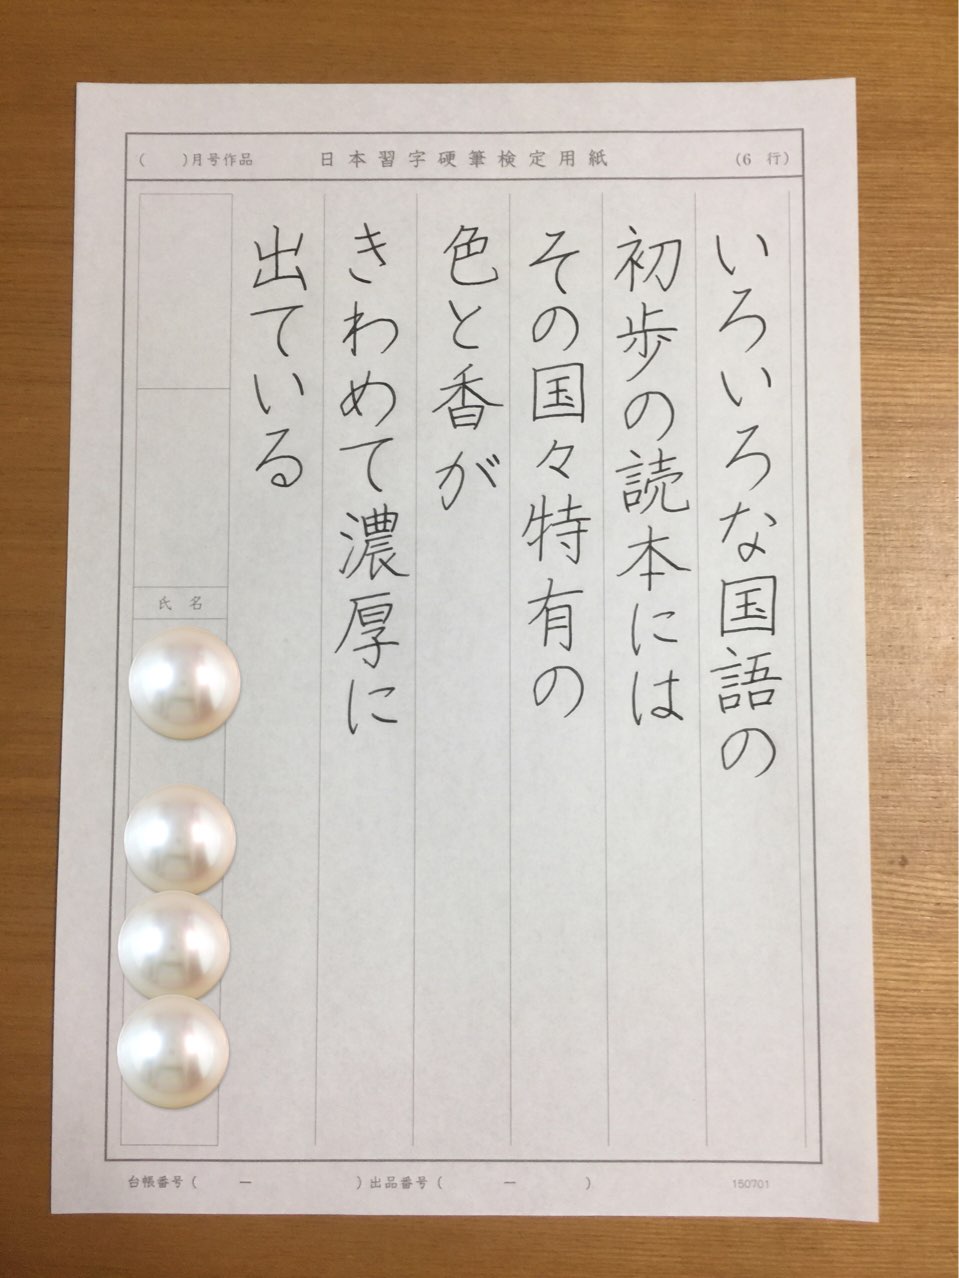 ( )月号作品 日本習字硬筆検定用紙 (6 行)
いろいろな国語の
初歩の読本には
その国々特有の
色と香が
きわめて濃厚に
出ている
氏名
台帳番号( ー )出品番号( ー )
150701